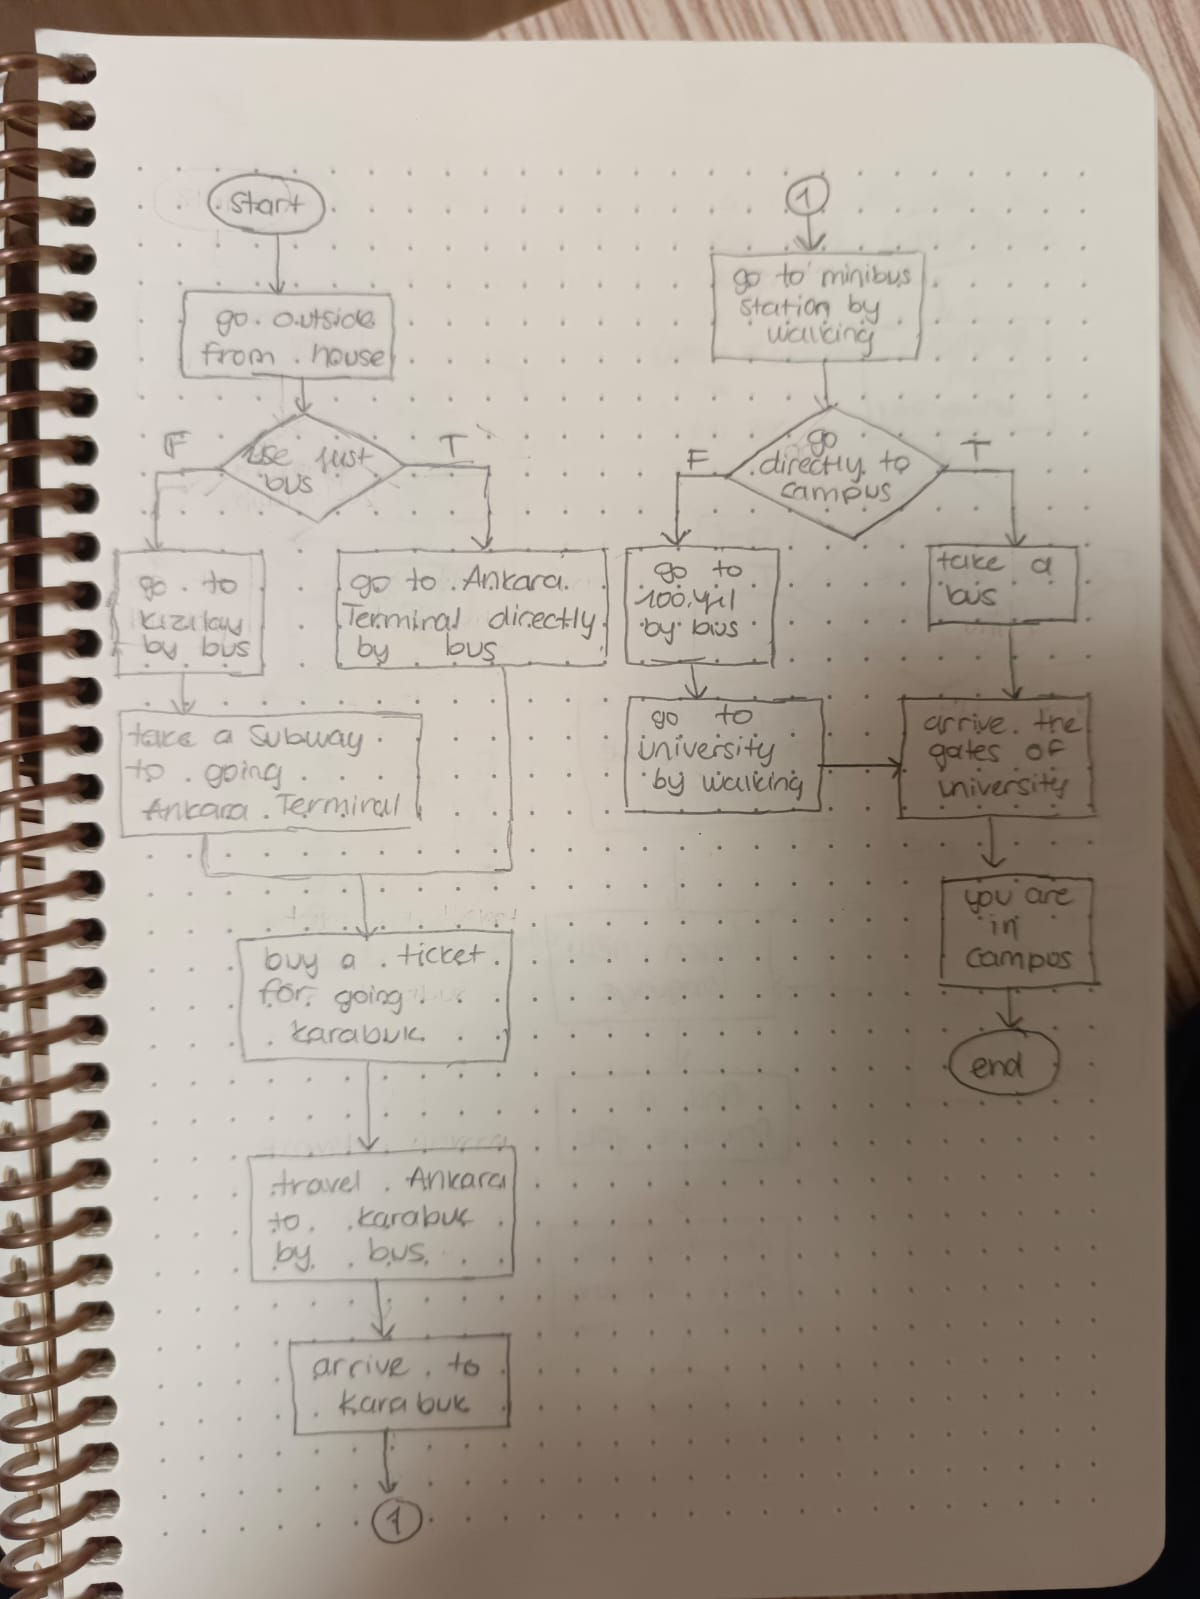 start
go outside
from house
use just
bus
F
T
go to
Kızılay
by bus
go to Ankara
Terminal directly
by bus
take a subway
to going
Ankara Terminal
buy a ticket
for going
Karabuk
travel Ankara
to Karabuk
by bus
arrive to
Karabuk
1
1
go to minibus
station by
walking
go
directly to
campus
F
T
go to
100.yıl
by bus
take a
bus
go to
university
by walking
arrive the
gates of
university
you are
in
campus
end